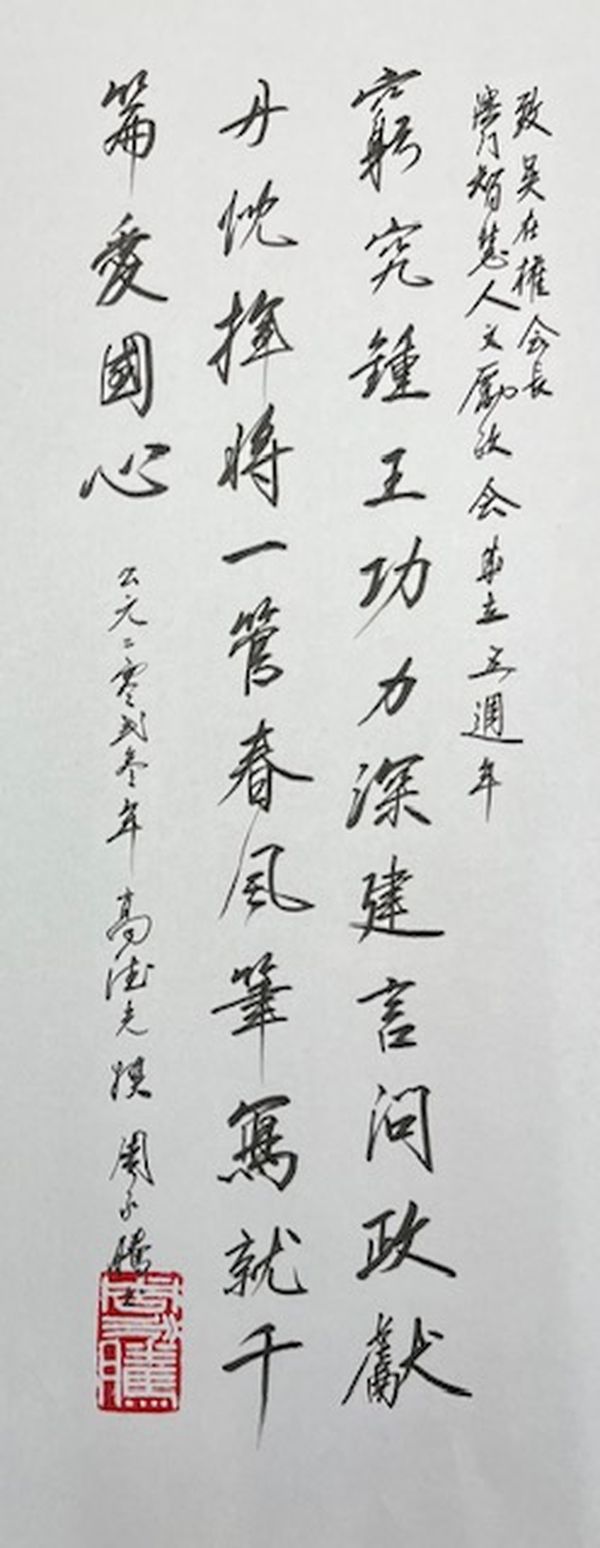 致 吳在權会長
澳门智慧人文勵政会成立三週年
窮究鍾王功力深建言问政獻
丹忱揮將一管春風筆寫就千
篇愛國心
公元二零弍叁年 高德光撰 周永騰書